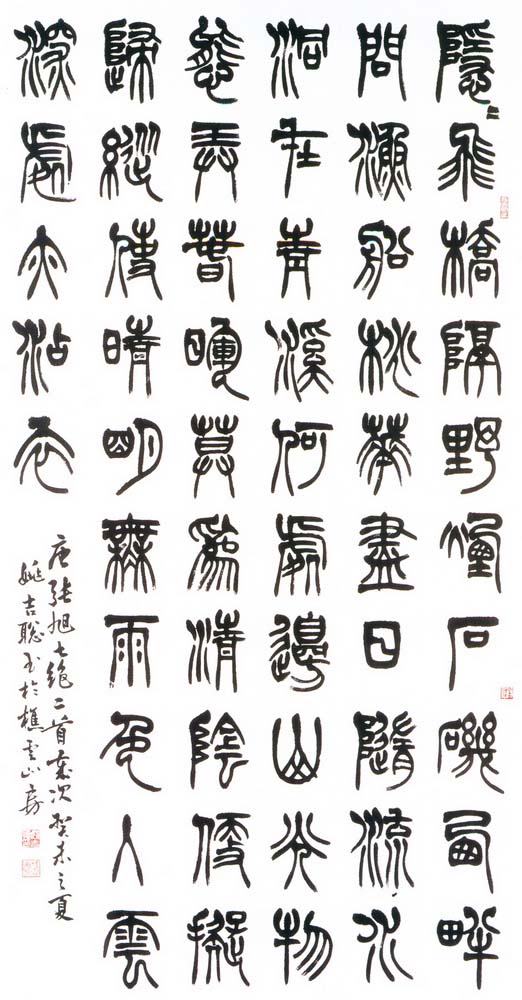 隱〻飛橋隔野煙石磯西畔
問漁船桃華盡日隨流水
洞在青溪何處邊山光物
態弄春暉莫為清陰便擬
歸縱使晴明無雨色入雲
深處亦沾衣
唐張旭七絕二首歲次癸未之夏
姚吉聰書於樵雲山房